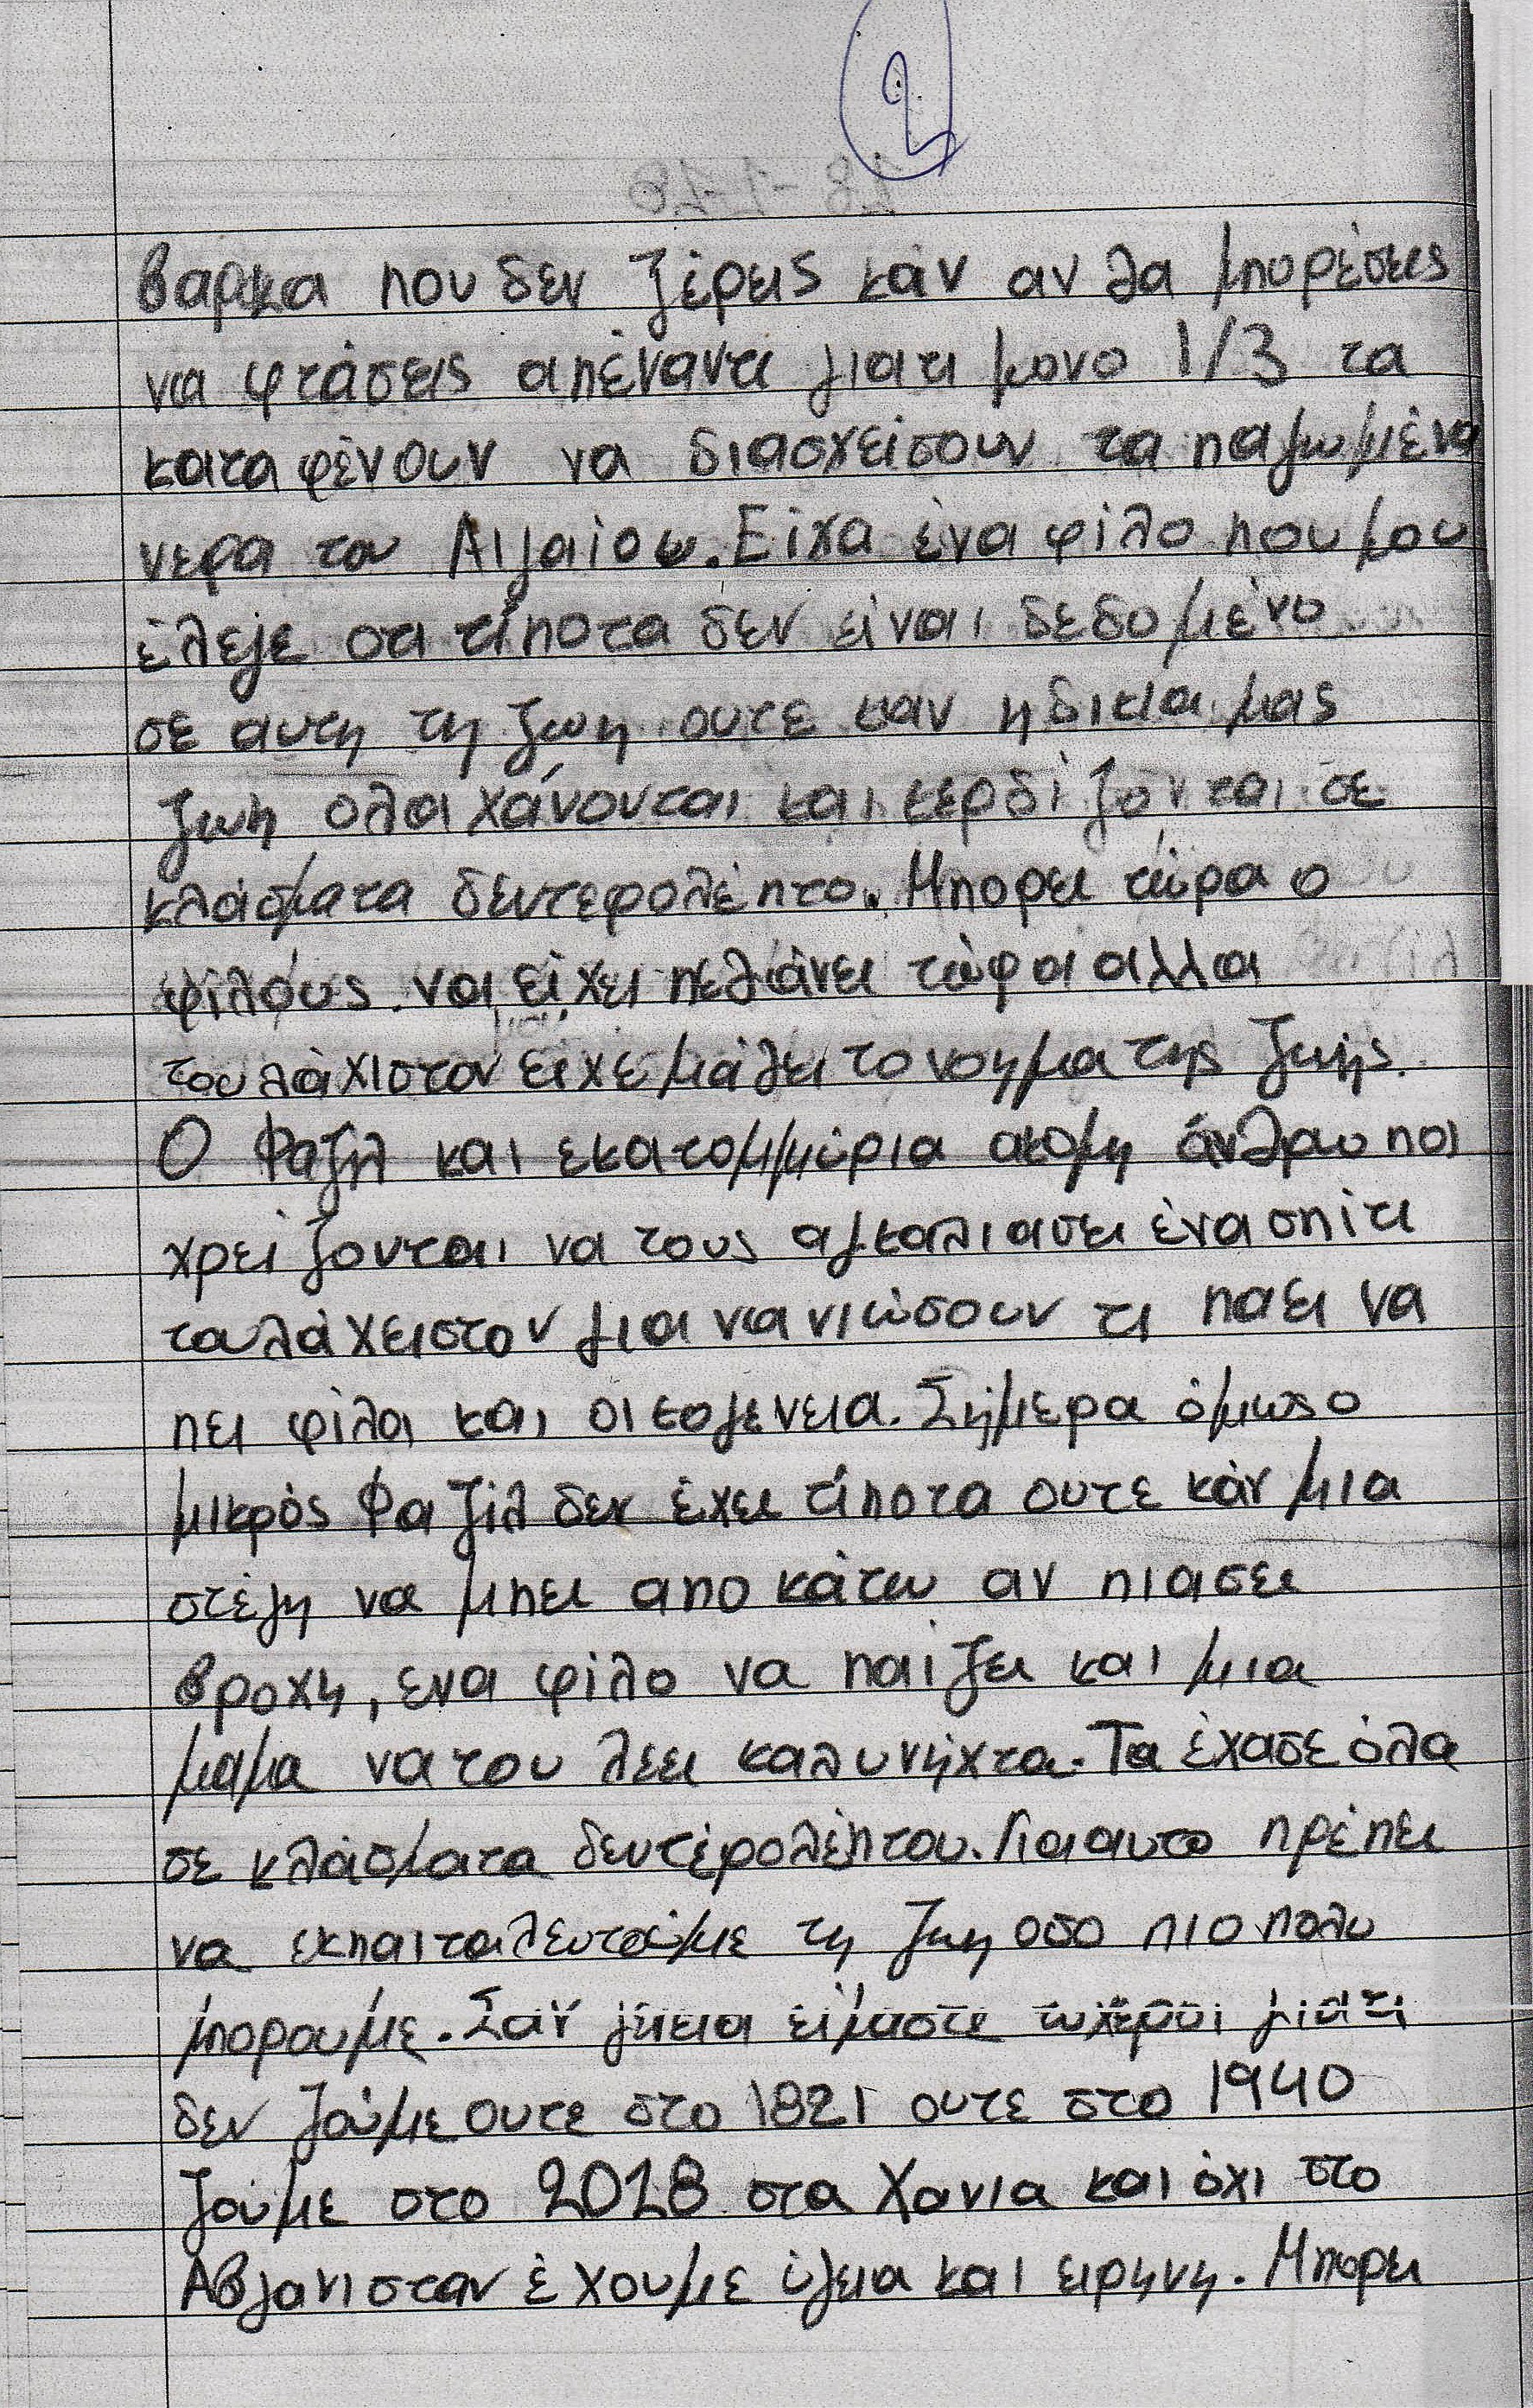 2
βαρκα που δεν ξέρεις κάν αν θα μπορέσεις
να φτάσεις απέναντι γιατι μονο 1/3 τα
καταφένουν να διασχείσουν τα παγωμένα
νερα του Αιγαίου. Είχα ένα φίλο που μου
έλεγε οτι τίποτα δεν είναι δεδομένο
σε αυτη τη ζωη ουτε καν η δικια μας
ζωη ολα χάνονται και κερδίζονται σε
κλάσματα δευτερολέπτο. Μπορει τώρα ο
φίλους να είχει πεθάνει τώρα αλλα
μου
τουλάχιστον ειχε μάθει το νοημα της ζωής.
Ο Φαζίλ και εκατομμύρια ακομη άνθρωποι
χρείζονται να τους αγκαλιασει ένα σπίτι
τουλάχειστον για να νιώσουν τι παει να
πει φίλοι και οικογενεια. Σήμερα όμως ο
μικρός Φαζίλ δεν έχει τίποτα ουτε κάν μια
στέγη να μπει απο κάτω αν πιασει
βροχη, ενα φίλο να παίζει και μια
μαμα να του λεει καλυνήχτα. Τα έχασε όλα
σε κλάσματα δευτέρολέπτου. Γιαυτο πρέπει
να εκπαιταλευτούμε τη ζωη οσο πιο πολυ
μπορουμε. Σαν γενεια είμαστε τυχεροι γιατι
δεν ζούμε ουτε στο 1821 ουτε στο 1940
ζούμε στο 2018 στα Χανια και όχι στο
Αβγανισταν έχουμε ύγεια και ειρηνη. Μπορει